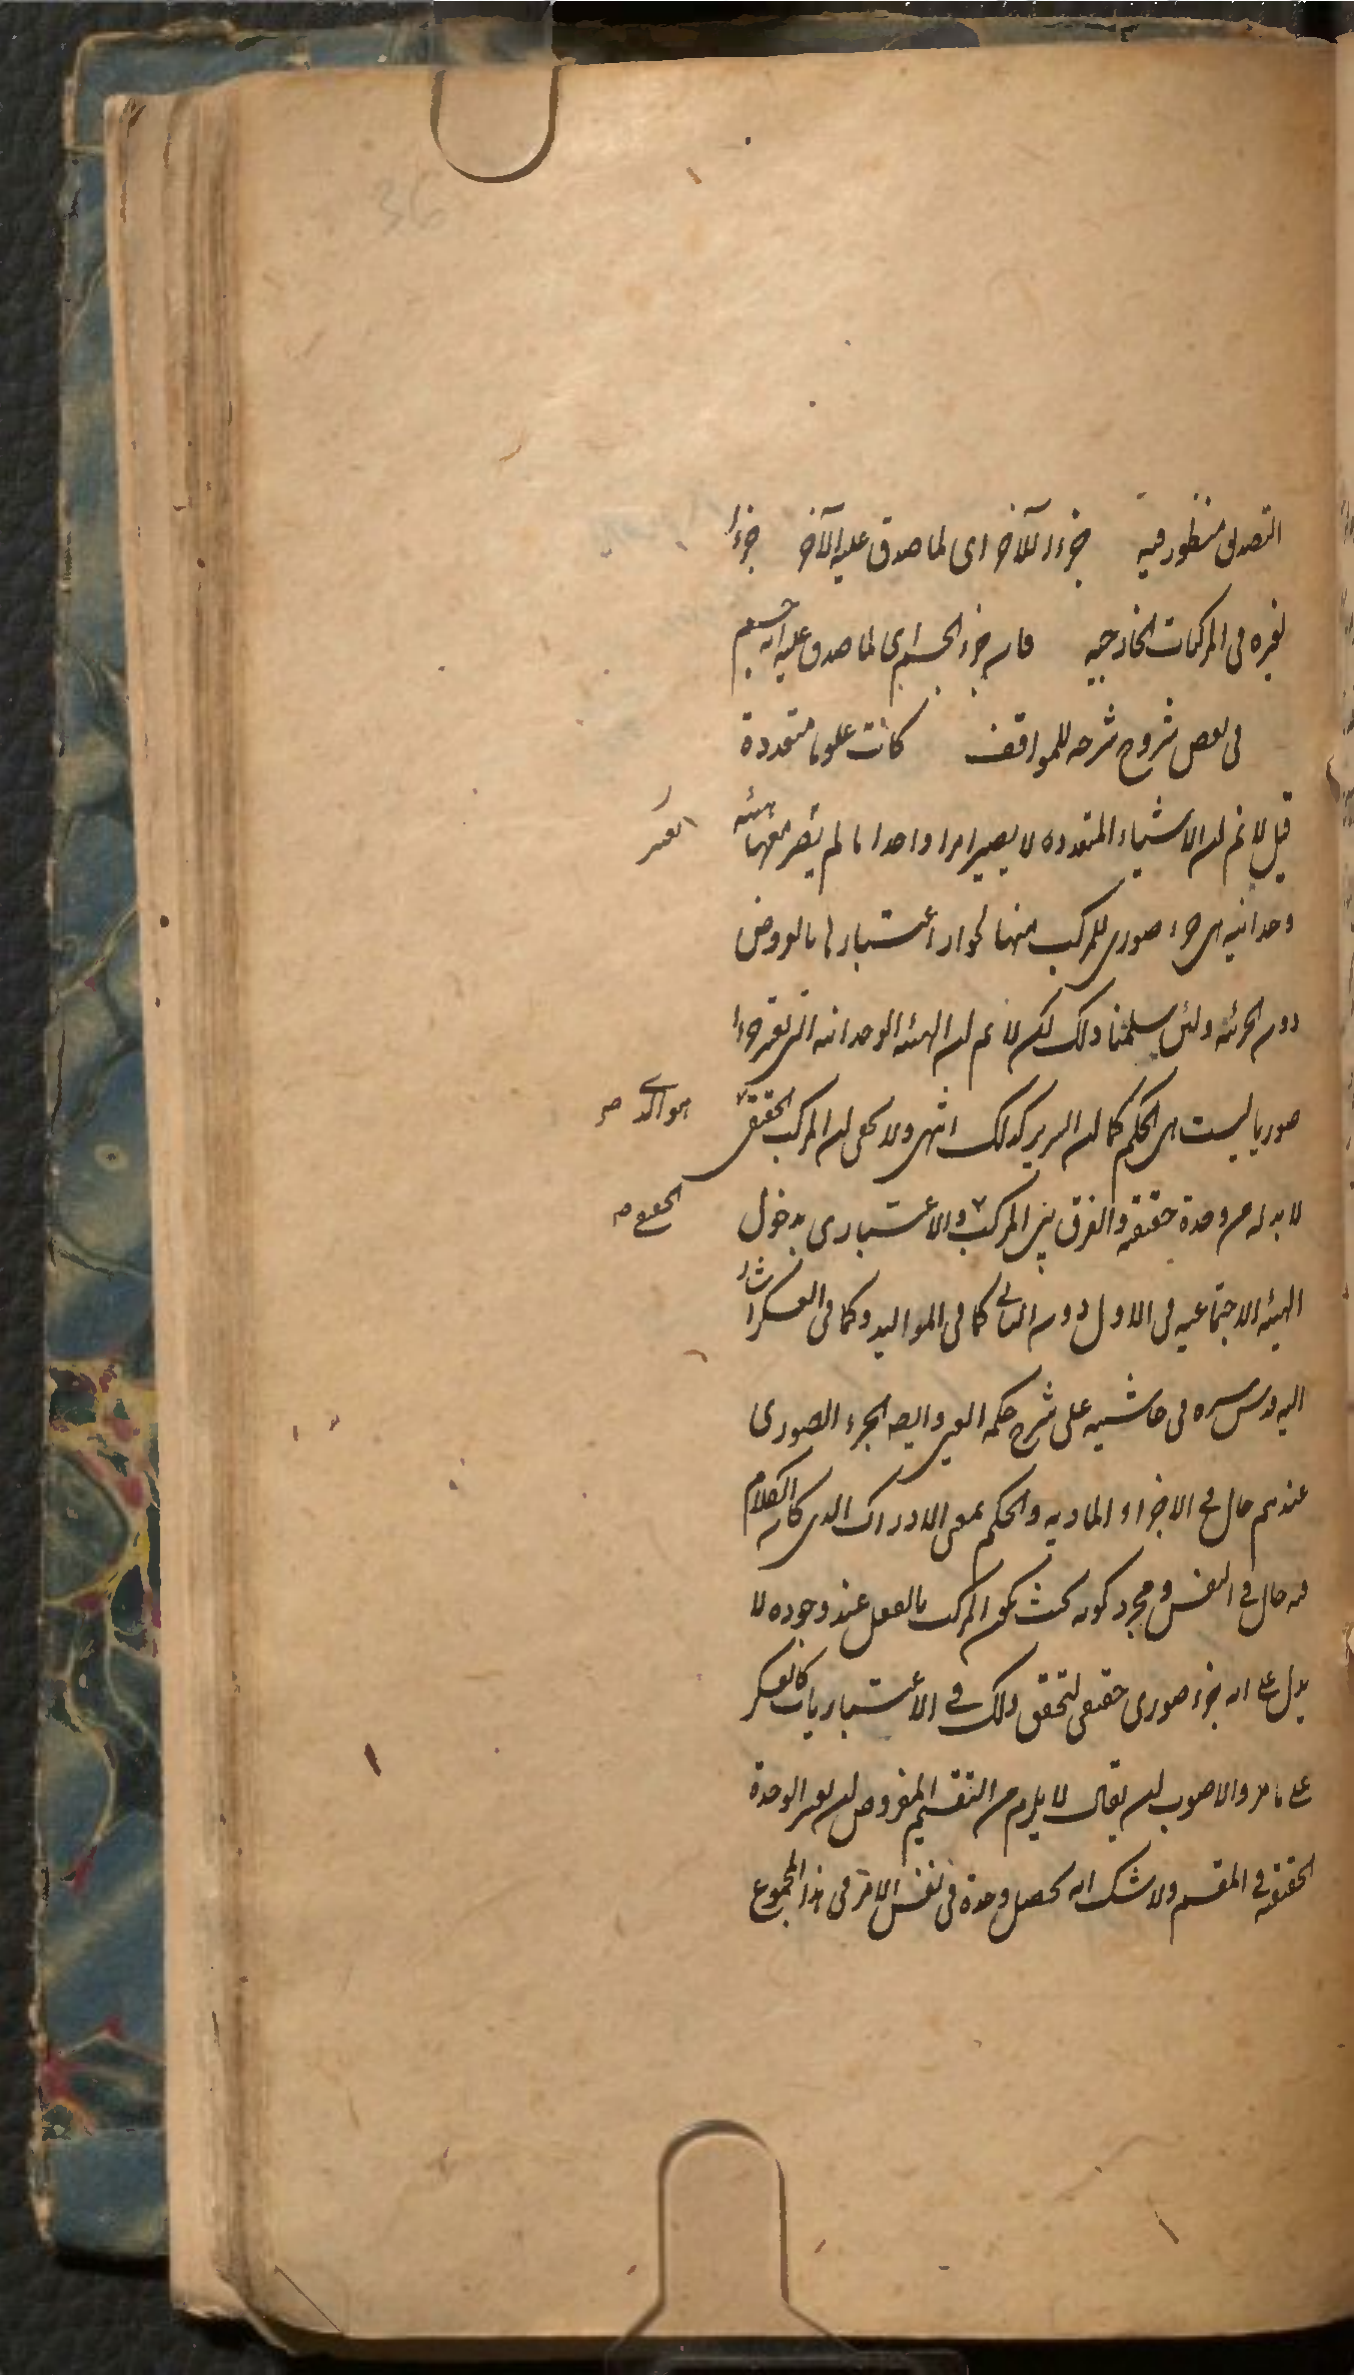 التصديق منظور فيه جزءا للآخر اى لما صدق عليه الآخر جزءا
لغيره فى المركبات الخارجيه فانه جزء الجسم اى لما صدق عليه انه جسم
فى بعض شروح شرحه للمواقف كانت علوما متعددة
قيل لا نم ان الاشياء المتعدده لا يصير امرا واحدا ما لم يعتبر معها هيئه
وحدانيه هى جزء صورى للمركب منها لجواز اعتبارها بالعروض
دون الجزئيه ولئن سلمنا ذلك لكن لا نم ان الهيئه الوحدانيه التى يعتبر جزءا
صوريا ليست هى الحكم كما ان السرير كذلك انتهى ولا يخفى ان المركب الحقيقى
هو الذى صر
لا بد له من وحدة حقيقيه والفرق بين المركب والاعتبارى بدخول
الحقيقى صر
الهيئه الاجتماعيه فى الاول دون الثانى كما فى المواليد وكما فى العسكر اشار
اليه قدس سره فى حاشيته على شرح حكمه العين وايضا الجزء الصورى
عندهم حال فى الاجزاء الماديه والحكم بمعنى الادراك الذى كان الكلام
فيه حال فى النفس ومجرد كونه بحيث يكون المركب بالفعل عند وجوده لا
يدل على انه جزء صورى حقيقى لتحقق ذلك فى الاعتباريات كالعسكر
على ما مر والاصوب ان يقال لا يلزم من التقسيم المفروض ان يعتبر الوحدة
الحقيقيه فى المقسم ولا شك انه يحصل وحدة فى نفس الامر فى هذا المجموع